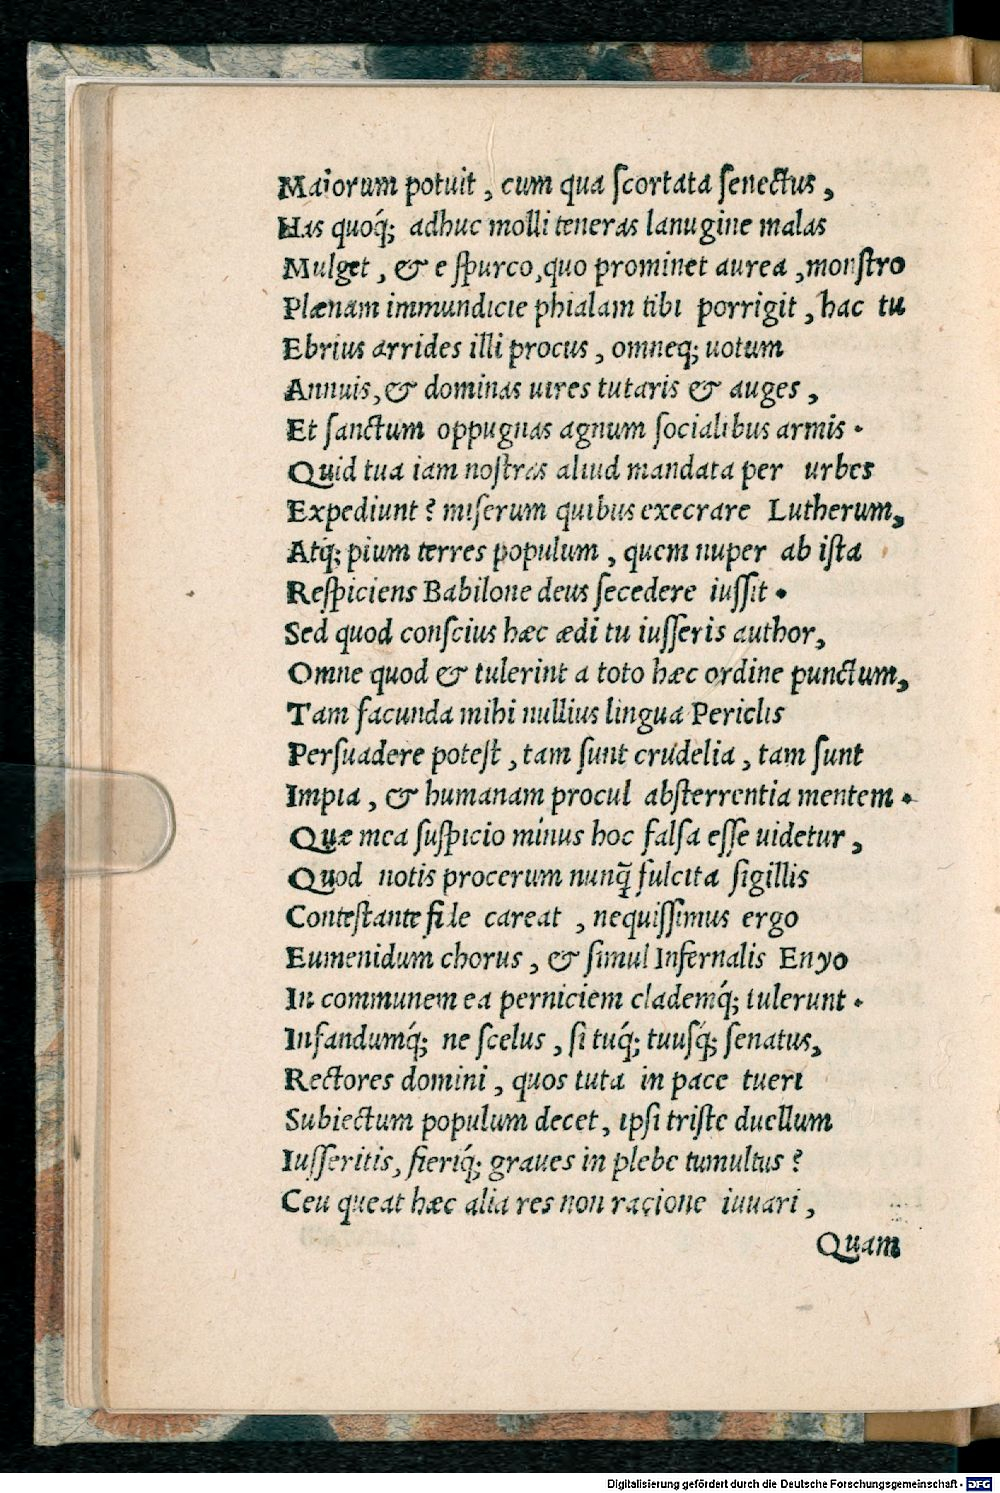 Maiorum potuit, cum qua ſcortata ſenectus,
Has quoq́; adhuc molli teneras lanugine malas
Mulget, & e ſpurco, quo prominet aurea, monſtro
Plænam immundicie phialam tibi porrigit, hac tu
Ebrius arrides illi procus, omneq; uotum
Annuis, & dominas uires tutaris & auges,
Et ſanctum oppugnas agnum ſocialibus armis.
Quid tua iam noſtras aliud mandata per urbes
Expediunt? miſerum quibus execrare Lutherum,
Atq́; pium terres populum, quem nuper ab iſta
Reſpiciens Babilone deus ſecedere iuſſit.
Sed quod conſcius hæc ædi tu iuſſeris author,
Omne quod & tulerint a toto hæc ordine punctum,
Tam facunda mihi nullius lingua Periclis
Perſuadere poteſt, tam ſunt crudelia, tam ſunt
Impia, & humanam procul abſterrentia mentem.
Quæ mea ſuſpicio minus hoc falſa eſſe uidetur,
Quod notis procerum nunq̃ fulcita ſigillis
Conteſtante fide careat, nequiſſimus ergo
Eumenidum chorus, & ſimul Infernalis Enyo
In communem ea perniciem clademq́; tulerunt.
Infandumq́; ne ſcelus, ſi tuq́; tuuſq́; ſenatus,
Rectores domini, quos tuta in pace tueri
Subiectum populum decet, ipſi triſte duellum
Iuſſeritis, fieriq́; graues in plebe tumultus?
Ceu queat hæc alia res non raçione iuuari,
Quam
Digitalisierung gefördert durch die Deutsche Forschungsgemeinschaft - DFG